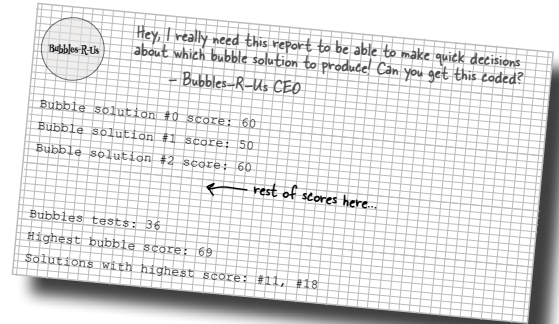 Bubbles-R-Us
Hey, I really need this report to be able to make quick decisions
about which bubble solution to produce! Can you get this coded?
– Bubbles-R-Us CEO
Bubble solution #0 score: 60
Bubble solution #1 score: 50
Bubble solution #2 score: 60
rest of scores here...
Bubbles tests: 36
Highest bubble score: 69
Solutions with highest score: #11, #18